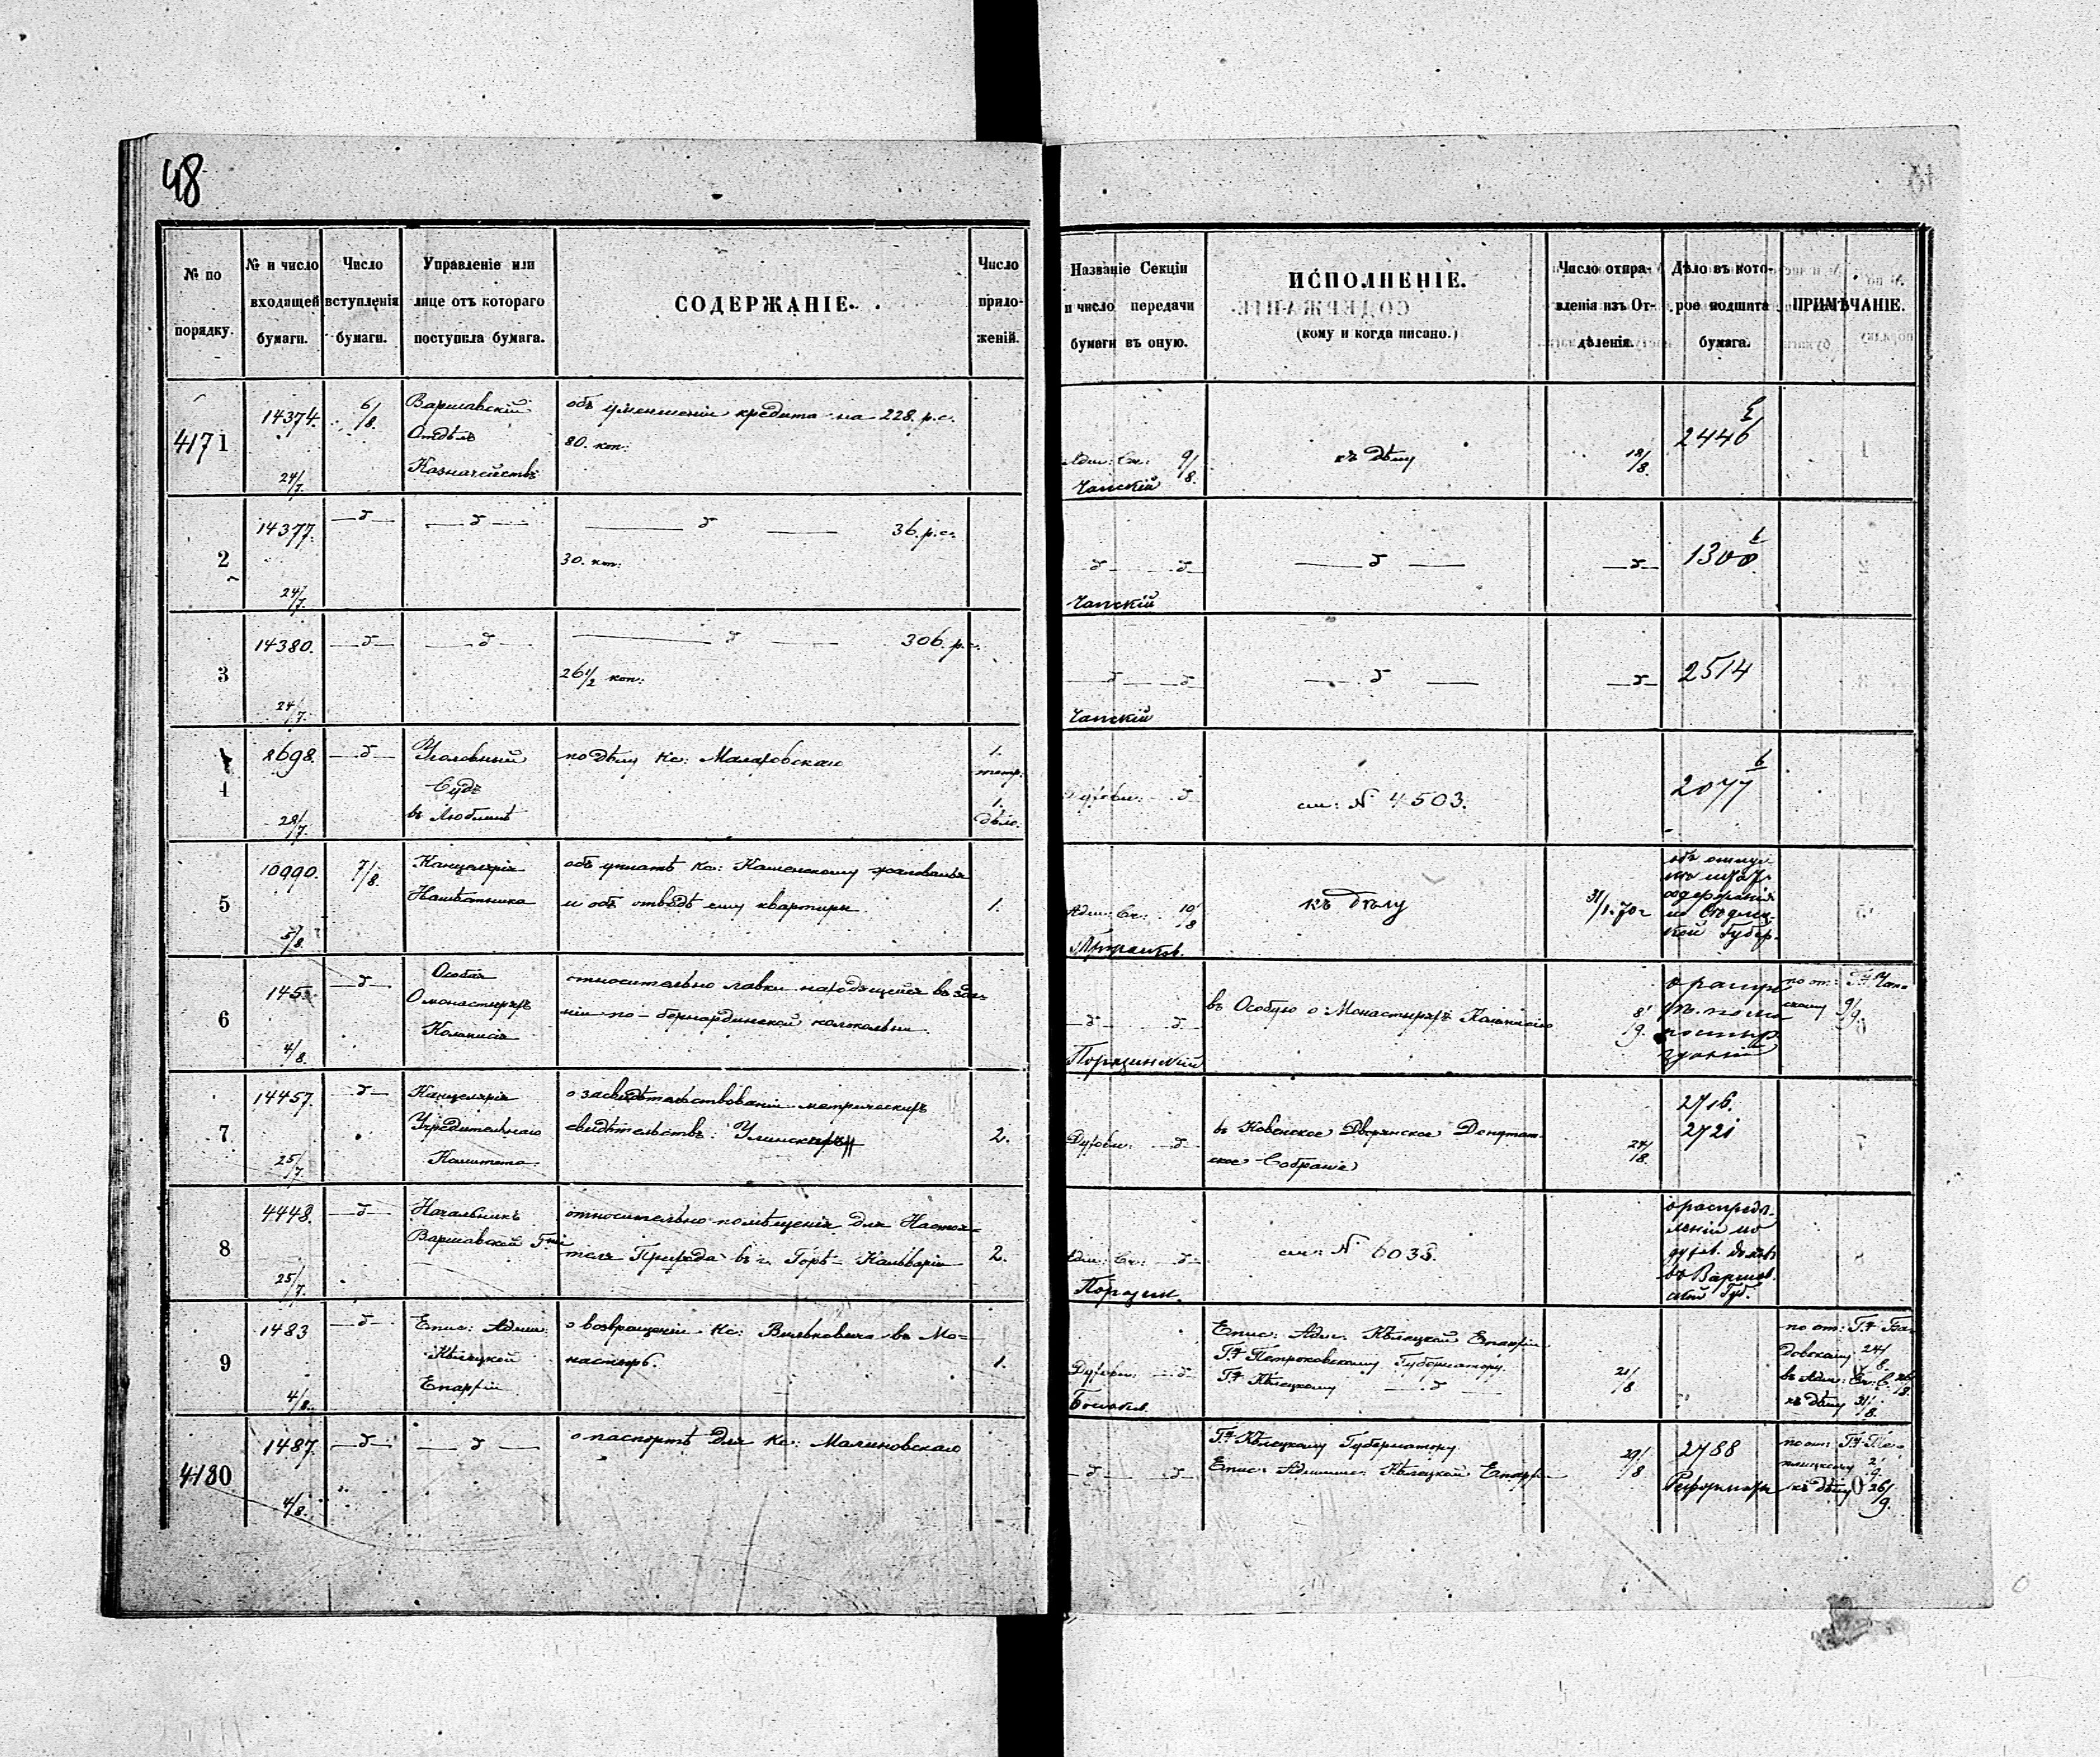 48
№ по порядку.
№ и число входящей бумаги.
Число вступленія бумаги.
Управленіе или лице отъ котораго поступила бумага.
СОДЕРЖАНІЕ.
Число приложеній.
Названіе Секціи и число передачи бумаги въ оную.
ИСПОЛНЕНІЕ.
(кому и когда писано.)
Число отправленія изъ Отдѣленія.
Дѣло въ которое подшита бумага.
ПРИМѢЧАНІЕ.
4171
14374.
24/7.
6/8.
Варшавскій
Отдѣлъ
Казначействъ
объ уменьшеніи кредита на 228. р. с.
80. коп.
Адм: Ск: 9/8.
Чапскій
къ дѣлу
18/8.
2446
2
14377.
24/7.
— д —
— д —
— д — 36. р. с.
30. коп.
— д — д —
Чапскій
— д —
— д —
1300
3
14380.
24/7.
— д —
— д —
— д — 306. р. с.
26 1/2 коп:
— д — д —
Чапскій
— д —
— д —
2514
4
8698.
28/7.
— д —
Уголовный
Судъ
въ Люблинѣ
по дѣлу Кс: Малаховскаго
1.
тетр.
1.
дѣло.
Духовн: — д
см: N 4503.
2077
6
5
10990.
5/8.
7/8.
Канцелярія
Намѣстника
объ уплатѣ Кс: Каменскому жалованья
и объ отводѣ ему квартиры
1.
Адм: Ск: 10/8
къ дѣлу
31/1. 70 г
объ отпус-
содержанія
по Сѣдлец-
кой Губер.
6
145
4/8.
— д —
Особая
О монастыряхъ
Комисія
относительно лавки находящейся въ зда-
ніи по-бернардинской колокольни.
— д — д
Поразинскій
въ Особую о Монастыряхъ Комиссію
8/9.
зданій
по от: Гна Чап-
скому 9/9.
7
14457.
25/7.
— д —
Канцелярія
Учредительнаго
Комитета
о засвидѣтельствованіи метрическихъ
свидѣтельствъ: Улинскихъ
2.
Духовн: — д —
въ Ковенское Дворянское Депутат-
ское Собраніе
24/8.
2716.
2721
8
4448.
25/7.
— д —
Начальникъ
Варшавской Гніи
относительно помѣщенія для Настоя-
теля Прихода въ г. Горѣ-Кальваріи
2.
Адм: Ск: — д —
Поразин.
см: N 6033.
о распредѣ-
леніи по
духов. домовъ
въ Варшав.
ской Губ.
9
1483
4/8.
— д —
Епис: Админ:
Кѣлецкой
Епархіи
о возвращеніи Кс: Вильковича въ Мо-
настырь.
1.
Духовн: — д
Епис: Адм. Кѣлецкой Епархіи
Гну Петроковскому Губернатору
Гну Кѣлецкому — д —
21/8
по от: Гну
довскому 24/8.
въ Адм: Ск: 26/8.
къ дѣлу 31/8.
4180
1487.
4/8.
— д —
— д —
о паспортѣ для Кс: Малиновскаго
— д — д
Гну Кѣлецкому Губернатору
Епис: Админис: Кѣлецкой Епархіи
29/8
2788
Реформаты
по от: Гну
2/9.
къ дѣлу 26/9.